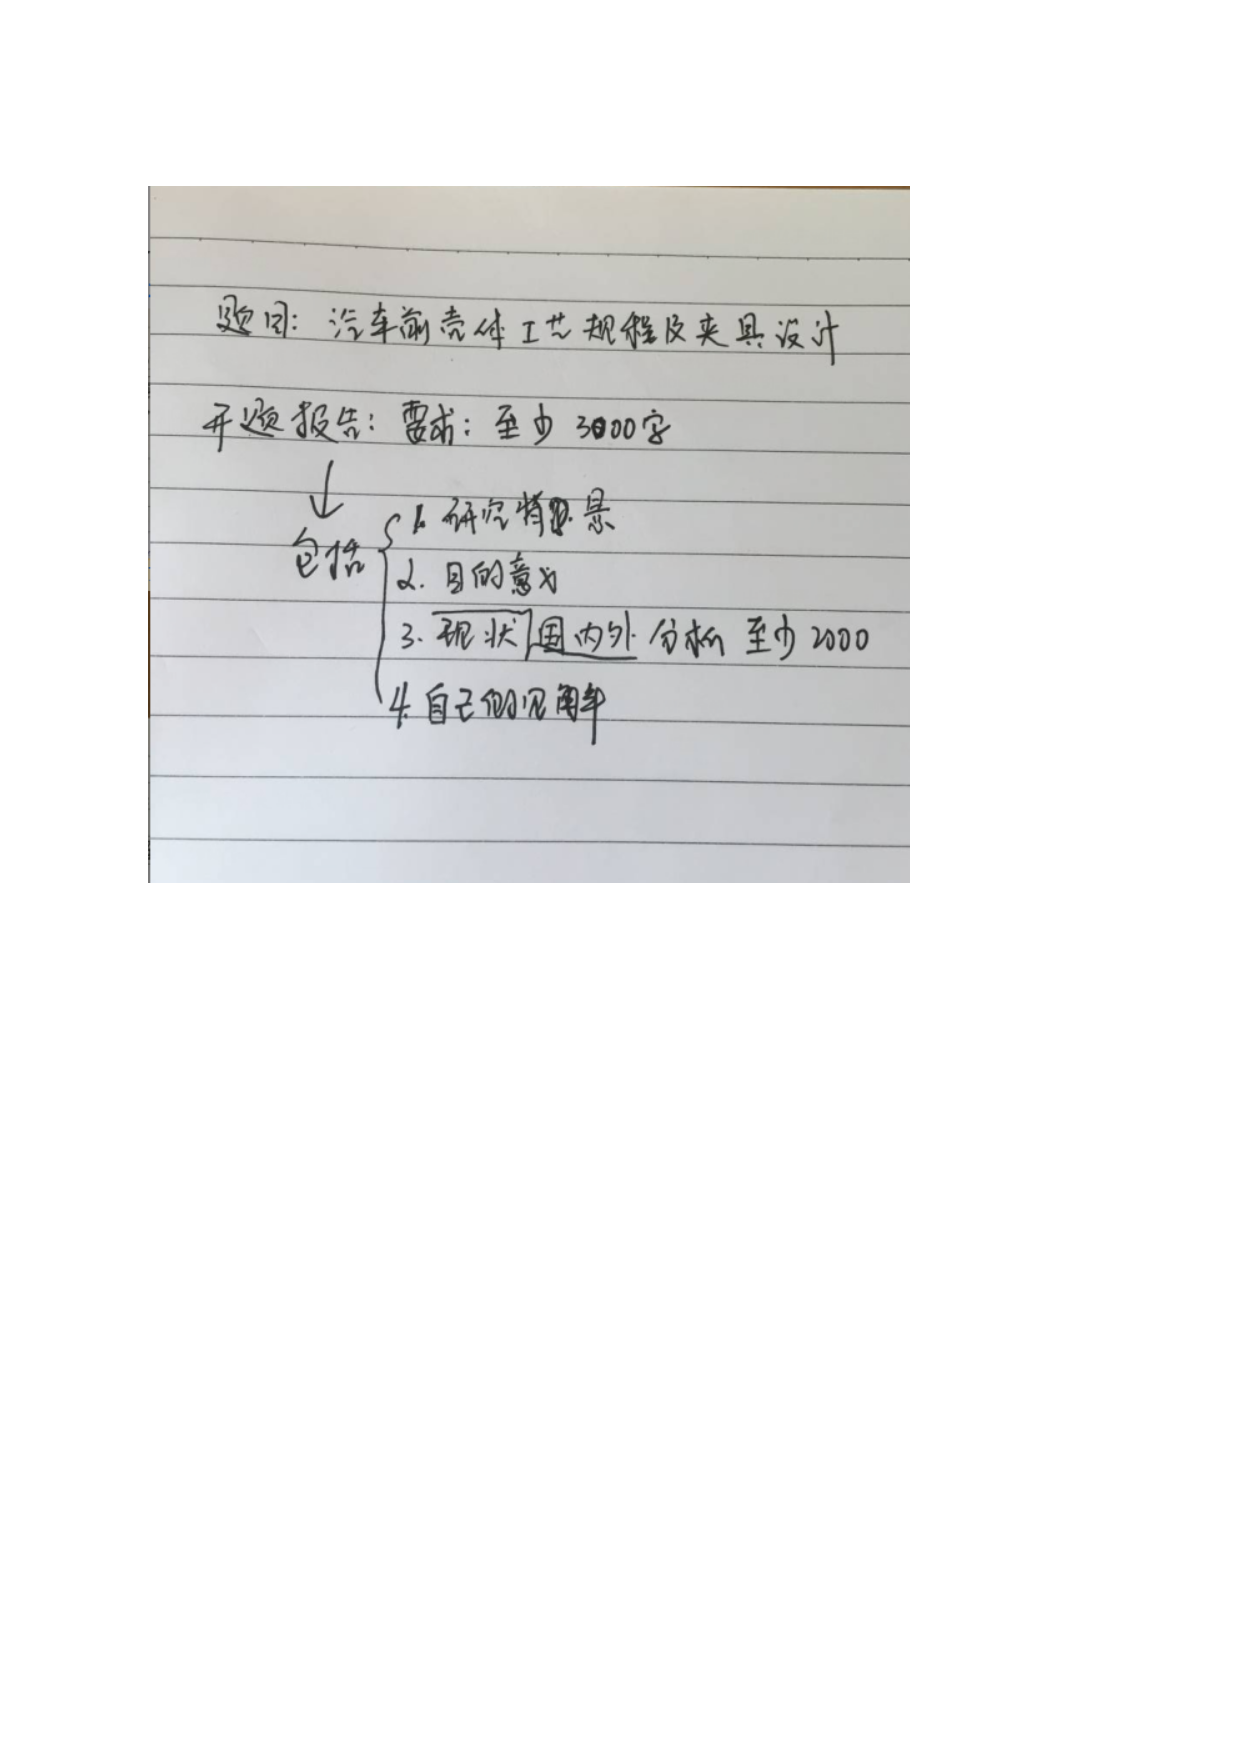 题目: 汽车前壳体工艺规程及夹具设计
开题报告: 要求: 至少3000字
包括
1. 研究背景
2. 目的意义
3. 现状 国内外 分析 至少2000
4. 自己的见解